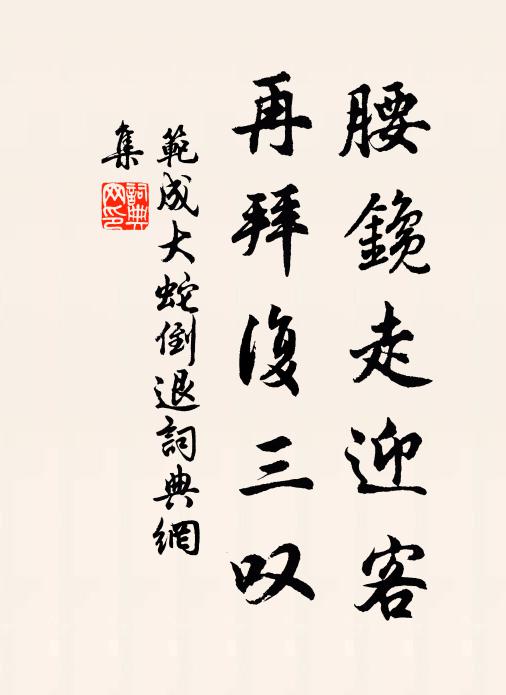 腰鑱走迎客
再拜復三叹
範成大蛇倒退詞典網
集
詞典網印